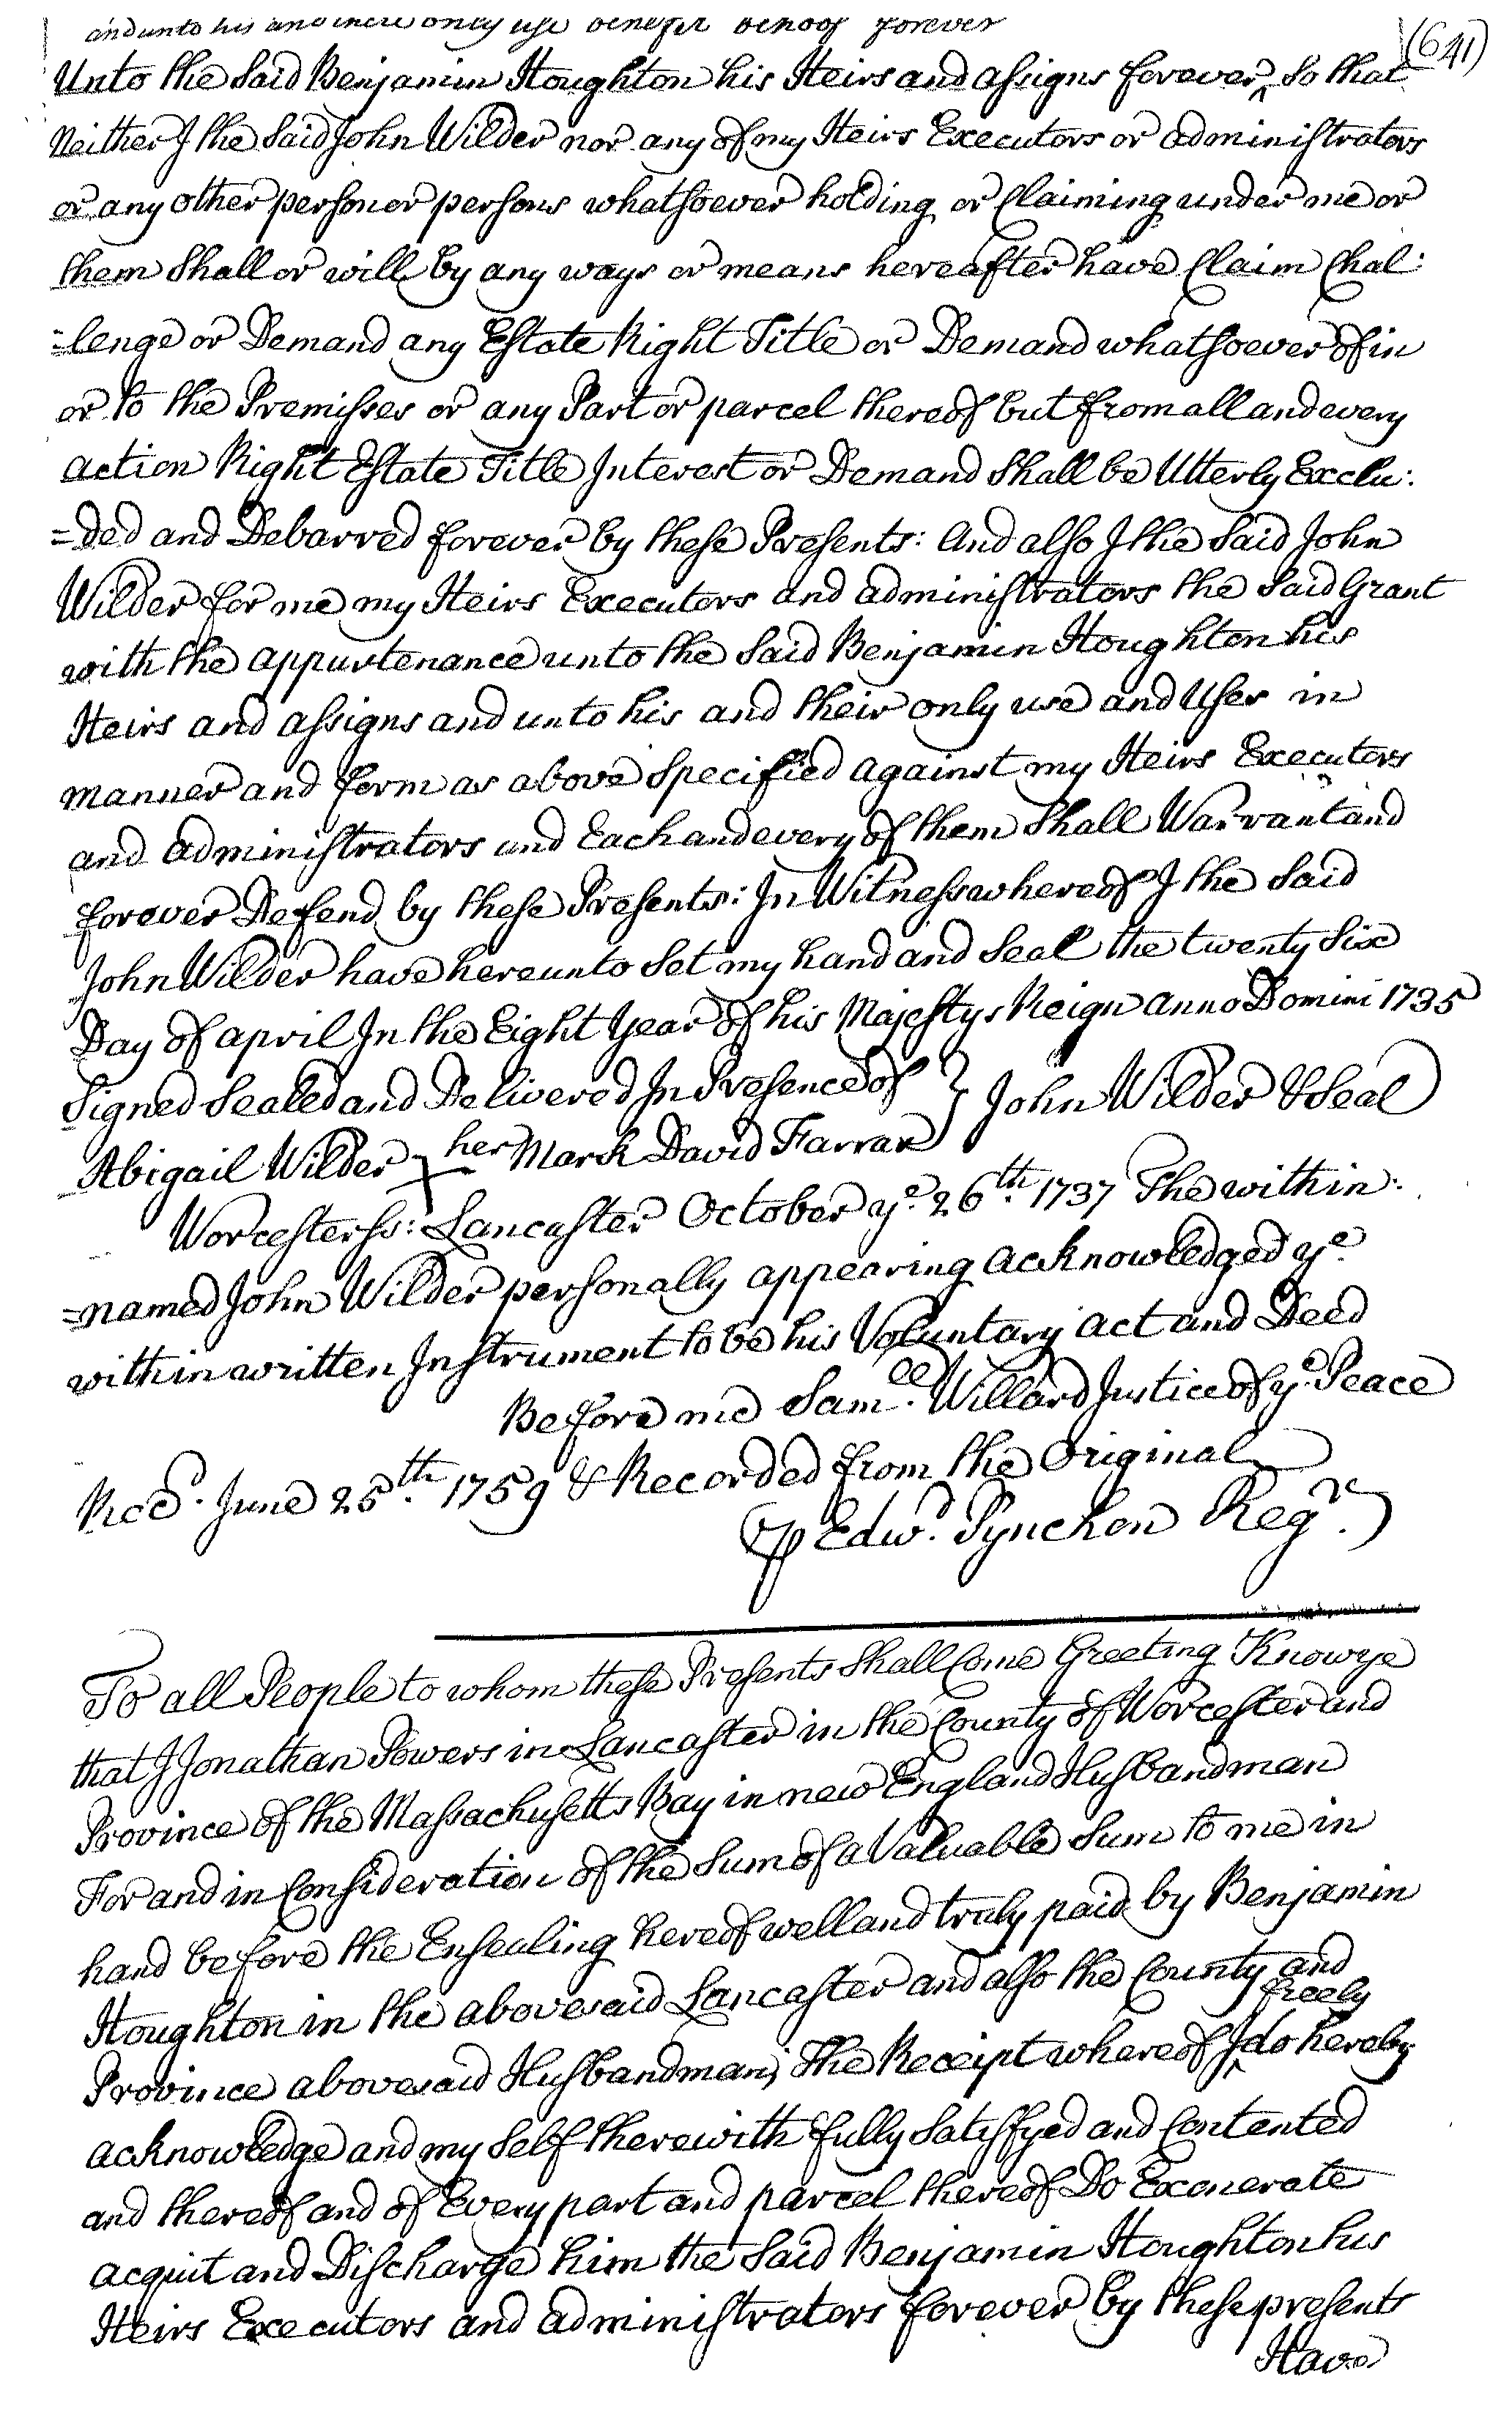 and unto his and their only use benefit behoof forever
(641)
Unto the Said Benjamin Houghton his Heirs and assigns forever ^ So that
Neither I the Said John Wilder nor any of my Heirs Executors or administrators
or any other person or persons whatsoever holding or Claiming under me or
them Shall or will by any ways or means hereafter have Claim Chal:
=lenge or Demand any Estate Right Title or Demand whatsoever of in
or to the Premisses or any Part or parcel thereof but from all and every
action Right Estate Title Interest or Demand Shall be Utterly Exclu:
=ded and Debarred forever by these Presents: And also I the Said John
Wilder for me my Heirs Executors and administrators the Said Grant
with the appurtenance unto the Said Benjamin Houghton his
Heirs and assigns and unto his and their only use and Uses in
manner and form as above Specified against my Heirs Executors
and administrators and Each and every of them Shall Warrant and
forever Defend by these Presents: In Witness whereof I the Said
John Wilder have hereunto Set my hand and Seal the twenty Six
Day of april In the Eight Year of his Majestys Reign anno Domini 1735
Signed Sealed and Delivered In Presence of } John Wilder & Seal
Abigail Wilder + her Mark David Farrar
Worcester ss: Lancaster October ye. 26th. 1737 The within:
=named John Wilder personally appearing acknowledged ye.
within written Instrument to be his Voluntary act and Deed
Before me Samll. Willard Justice of ye. Peace
Recd. June 25th. 1759 & Recorded from the Original
⅌ Edwd. Pynchon Regr.
To all People to whom these Presents Shall Come Greeting Know ye
that I Jonathan Powers in Lancaster in the County of Worcester and
Province of the Massachusetts Bay in new England Husbandman
For and in Consideration of the Sum of a Valuable Sum to me in
hand before the Ensealing hereof well and truly paid by Benjamin
Houghton in the abovesaid Lancaster and also the County and
freely
Province abovesaid Husbandman; The Receipt whereof I ^ do hereby
acknowledge and my Self therewith fully Satisfyed and Contented
and thereof and of Every part and parcel thereof Do Exonerate
acquit and Discharge him the Said Benjamin Houghton his
Heirs Executors and administrators forever by these presents
Have